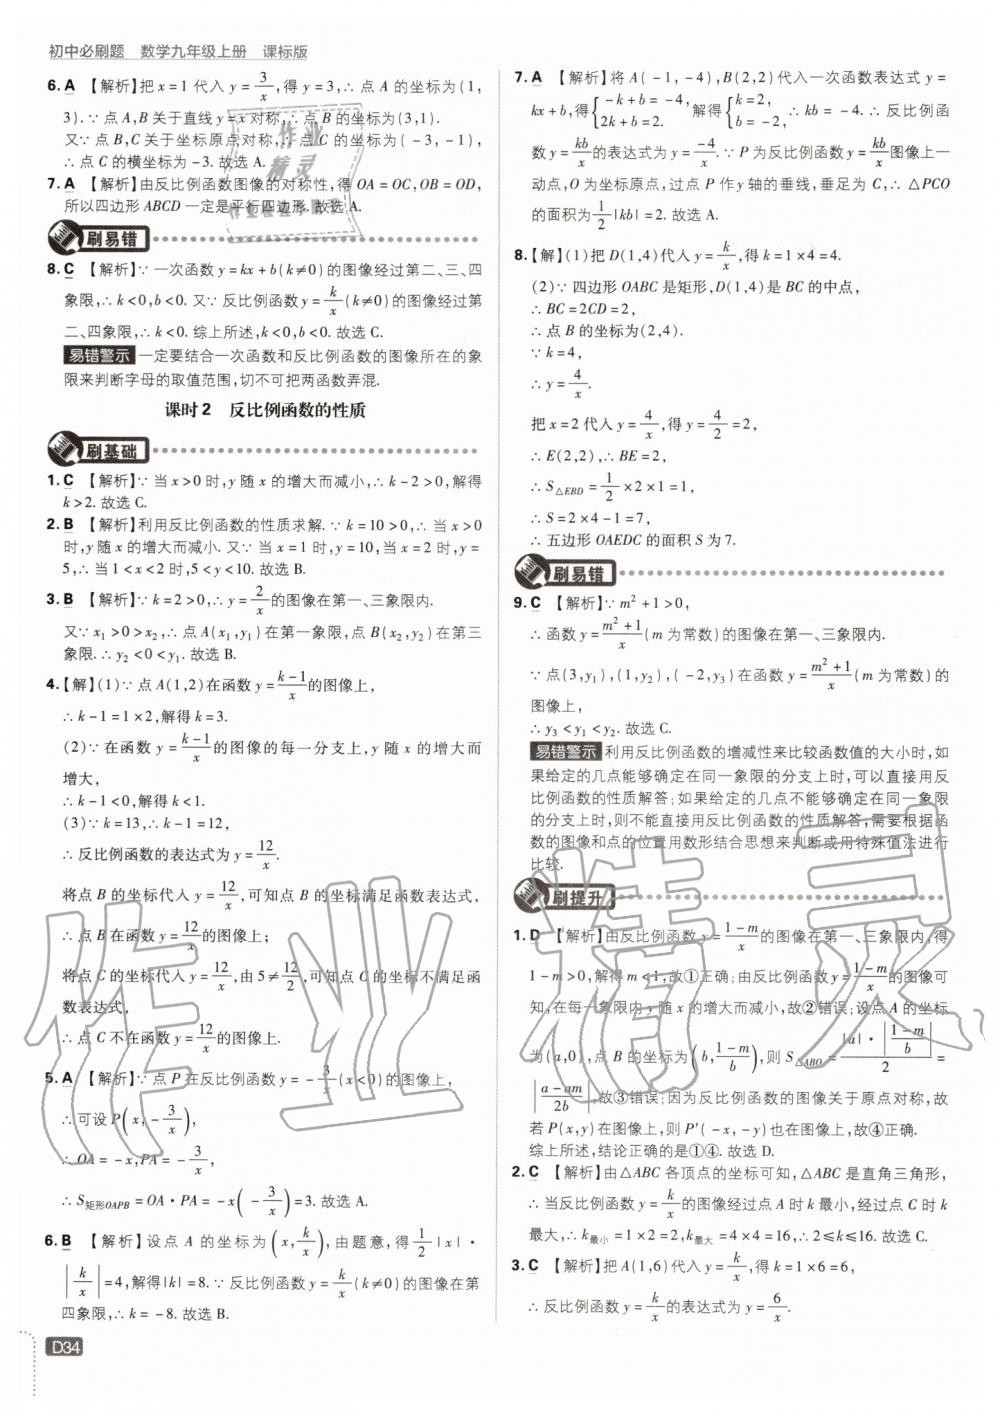 初中必刷题 数学九年级上册 课标版
6. A 【解析】把 x=1 代入 y=3/x,得 y=3,∴ 点 A 的坐标为(1,
3).∵ 点 A,B 关于直线 y=x 对称,∴ 点 B 的坐标为(3,1).
又∵ 点 B,C 关于坐标原点对称,∴ 点 C 的坐标为(-3,-1),
∴ 点 C 的横坐标为-3. 故选 A.
7. A 【解析】由反比例函数图像的对称性,得 OA=OC,OB=OD,
所以四边形 ABCD 一定是平行四边形. 故选 A.
刷易错
8. C 【解析】∵ 一次函数 y=kx+b(k≠0)的图像经过第二、三、四
象限,∴ k<0,b<0. 又∵ 反比例函数 y=k/x(k≠0)的图像经过第
二、四象限,∴ k<0. 综上所述,k<0,b<0. 故选 C.
易错警示 一定要结合一次函数和反比例函数的图像所在的象
限来判断字母的取值范围,切不可把两函数弄混.
课时2 反比例函数的性质
刷基础
1. C 【解析】∵ 当 x>0 时,y 随 x 的增大而减小,∴ k-2>0,解得
k>2. 故选 C.
2. B 【解析】利用反比例函数的性质求解. ∵ k=10>0,∴ 当 x>0
时,y 随 x 的增大而减小. 又∵ 当 x=1 时,y=10,当 x=2 时,y=
5,∴ 当 1<x<2 时,5<y<10. 故选 B.
3. B 【解析】∵ k=2>0,∴ y=2/x的图像在第一、三象限内.
又∵ x₁>0>x₂,∴ 点 A(x₁,y₁)在第一象限,点 B(x₂,y₂)在第三
象限. ∴ y₂<0<y₁. 故选 B.
4.【解】(1)∵ 点 A(1,2)在函数 y=(k-1)/x的图像上,
∴ k-1=1×2,解得 k=3.
(2)∵ 在函数 y=(k-1)/x的图像的每一分支上,y 随 x 的增大而
增大,
∴ k-1<0,解得 k<1.
(3)∵ k=13,∴ k-1=12,
∴ 反比例函数的表达式为 y=12/x.
将点 B 的坐标代入 y=12/x,可知点 B 的坐标满足函数表达式,
∴ 点 B 在函数 y=12/x的图像上;
将点 C 的坐标代入 y=12/x,由 5≠12/2,可知点 C 的坐标不满足函
数表达式,
∴ 点 C 不在函数 y=12/x的图像上.
5. A 【解析】∵ 点 P 在反比例函数 y=-3/x(x<0)的图像上,
∴ 可设 P(x,-3/x),
∴ OA=-x,PA=-3/x,
∴ S矩形OAPB=OA·PA=-x(-3/x)=3. 故选 A.
6. B 【解析】设点 A 的坐标为(x,k/x),由题意,得1/2|x|·
|k/x|=4,解得|k|=8. ∵ 反比例函数 y=k/x(k≠0)的图像在第
四象限,∴ k=-8. 故选 B.
D34
7. A 【解析】将 A(-1,-4),B(2,2)代入一次函数表达式 y=
kx+b,得{-k+b=-4, 2k+b=2. 解得{k=2, b=-2, ∴ kb=-4. ∴ 反比例函
数 y=kb/x的表达式为 y=-4/x. ∵ P 为反比例函数 y=kb/x图像上一
动点,O 为坐标原点,过点 P 作 y 轴的垂线,垂足为 C,∴ △PCO
的面积为1/2|kb|=2. 故选 A.
8.【解】(1)把 D(1,4)代入 y=k/x,得 k=1×4=4.
(2)∵ 四边形 OABC 是矩形,D(1,4)是 BC 的中点,
∴ BC=2CD=2,
∴ 点 B 的坐标为(2,4).
∵ k=4,
∴ y=4/x.
把 x=2 代入 y=4/x,得 y=4/2=2,
∴ E(2,2),∴ BE=2,
∴ S△EBD=1/2×2×1=1,
∴ S=2×4-1=7,
∴ 五边形 OAEDC 的面积 S 为 7.
刷易错
9. C 【解析】∵ m²+1>0,
∴ 函数 y=(m²+1)/x(m 为常数)的图像在第一、三象限内.
∵ 点(3,y₁),(1,y₂),(-2,y₃)在函数 y=(m²+1)/x(m 为常数)的
图像上,
∴ y₃<y₁<y₂. 故选 C.
易错警示 利用反比例函数的增减性来比较函数值的大小时,如
果给定的几点能够确定在同一象限的分支上时,可以直接用反
比例函数的性质解答;如果给定的几点不能够确定在同一象限
的分支上时,则不能直接用反比例函数的性质解答,需要根据函
数的图像和点的位置用数形结合思想来判断或用特殊值法进行
比较.
刷提升
1. D 【解析】由反比例函数 y=(1-m)/x的图像在第一、三象限内,得
1-m>0,解得 m<1,故①正确;由反比例函数 y=(1-m)/x的图像可
知,在每一象限内 y 随 x 的增大而减小,故②错误;设点 A 的坐标
为(a,0),点 B 的坐标为(b,(1-m)/b),则 S△ABO=(|a|·|(1-m)/b|)/2=
|(a-am)/2b|,故③错误;因为反比例函数的图像关于原点对称,故
若 P(x,y)在图像上,则 P′(-x,-y)也在图像上,故④正确.
综上所述,结论正确的是①④. 故选 D.
2. C 【解析】由△ABC 各顶点的坐标可知,△ABC 是直角三角形,
∴ 当反比例函数 y=k/x的图像经过点 A 时 k 最小,经过点 C 时 k
最大,∴ k最小=1×2=2,k最大=4×4=16,∴ 2≤k≤16. 故选 C.
3. C 【解析】把 A(1,6)代入 y=k/x,得 k=1×6=6,
∴ 反比例函数 y=k/x的表达式为 y=6/x.
作业精灵